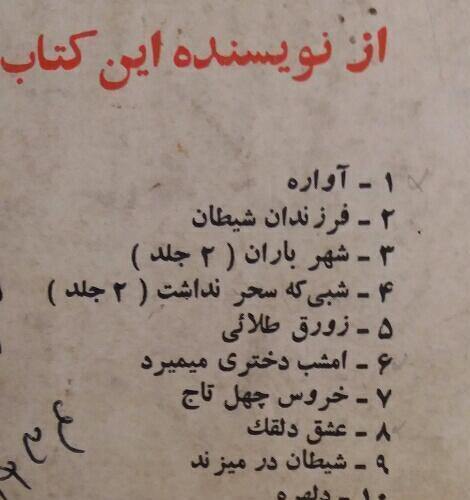 از نویسنده این کتاب
۱ - آواره
۲ - فرزندان شیطان
۳ - شهر باران ( ۲ جلد )
۴ - شبی‌که سحر نداشت ( ۲ جلد )
۵ - زورق طلائی
۶ - امشب دختری میمیرد
۷ - خروس چهل تاج
۸ - عشق دلقك
۹ - شیطان در میزند
۱۰ - دلهره